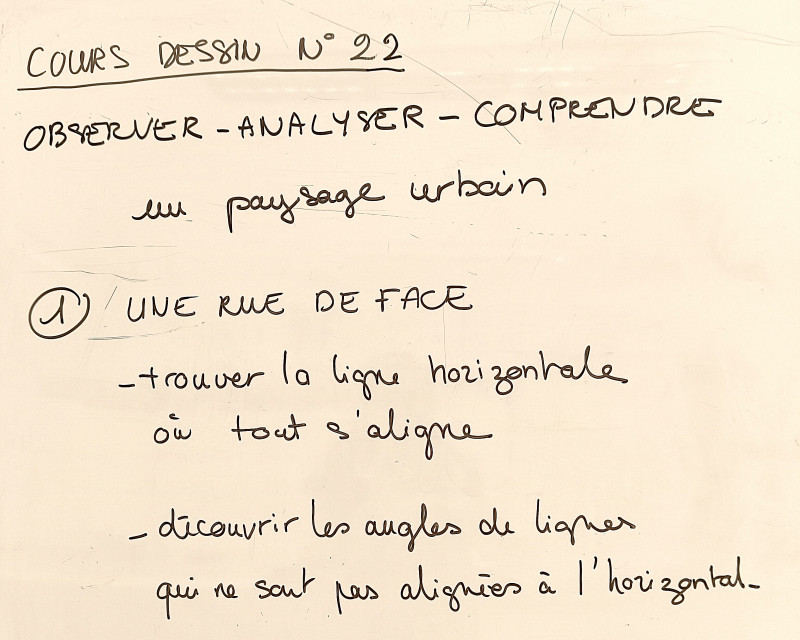 COURS DESSIN N° 22
OBSERVER - ANALYSER - COMPRENDRE
un paysage urbain
① UNE RUE DE FACE
- trouver la ligne horizontale
où tout s'aligne
- découvrir les angles de lignes
qui ne sont pas alignées à l'horizontal-